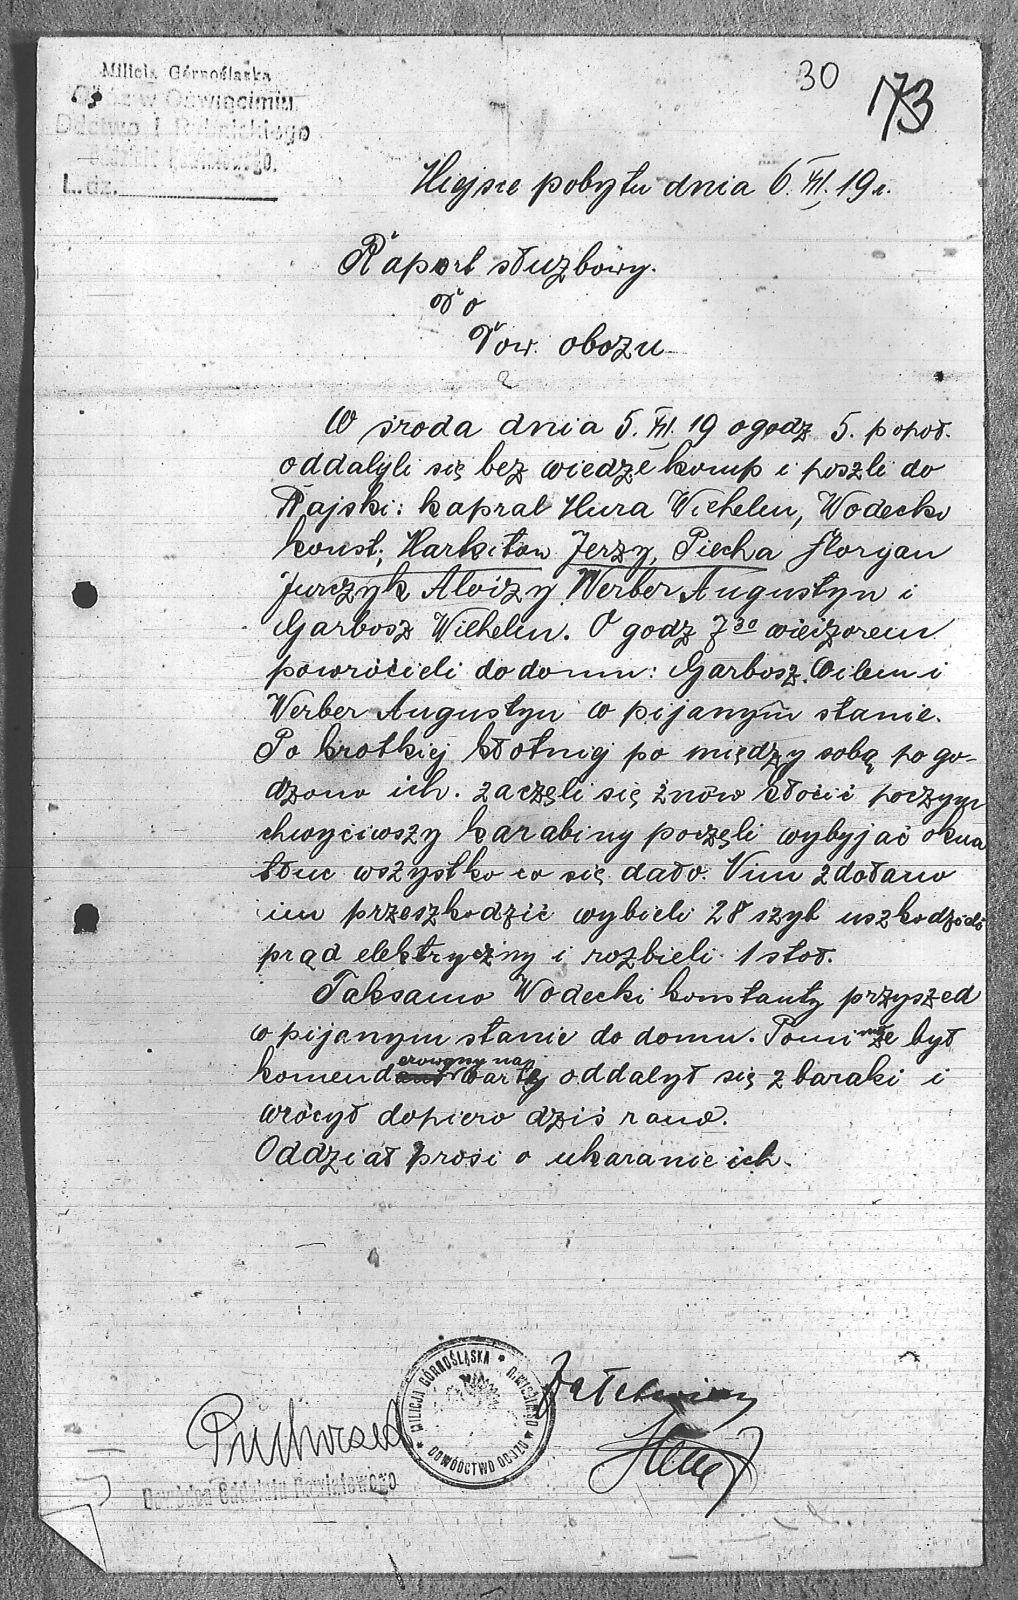 30
173
Milicja Górnośląska
Obóz w Oświęcimiu
Ddctwo I. Rybnickiego
L. dz.
Miejsce pobytu dnia 6. VII. 19 r.
Raport słuzbowy.
Do
Dow. obozu
W sroda dnia 5. VII. 19 o godz 5. popoł.
oddalyli się bez wiedzé komp i poszli do
Rajski: kapral Hura Wilhelm, Wodecki
konst; Markiton Jerzy, Piecha Floryan
Jurczyk Aloizy Werber Augustyn i
Garbosz Wilhelm. O godz 7 30 wieizorem
powróćieli do domu: Garbosz Wilem i
Werber Augustyn w pijanym stanie.
Po krotkiej kłotniej po między sobą pogo-
dzono ich. zaczęli się żnów kłoćić poczym
chwyćiwszy karabiny poczęli wybyjać okna
tłuc wszystko co się dało. Nim zdołano
im przeszkodzić wybieli 28 szyb uszkodzieli
prąd elektryczny i rozbieli 1 stoł.
Taksamo Wodecki konstanty przyszed
w pijanym stanie do domu. Pomimo że był
komenderowany na wartę oddalył się z baraki i
wrócył dopiero dziś rano.
Oddział prosi o ukaranie ich.
MILICJA GÓRNOŚLĄSKA
DOWÓDCTWO OBOZU
Dowódca Oddziału